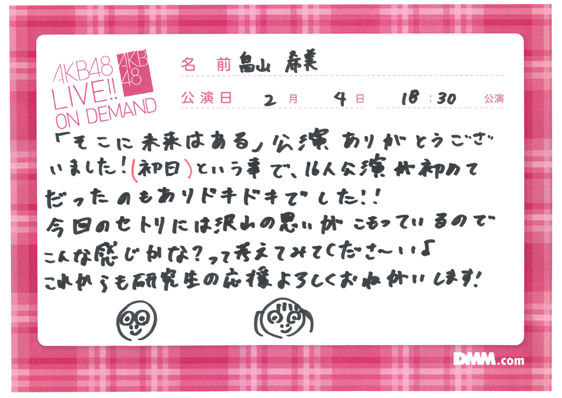 AKB48
LIVE!!
ON DEMAND
AKB
48
名 前 畠山 希美
公演日 2 月 4 日 18 : 30 公演
「そこに未来はある」公演ありがとうござ
いました!(初日)という事で、16人公演が初めて
だったのもありドキドキでした!!
今日のセトリには沢山の思いがこもっているので
こんな感じかな?って考えてみてくださ〜い♩
これからも研究生の応援よろしくおねがいします!
DMM.com